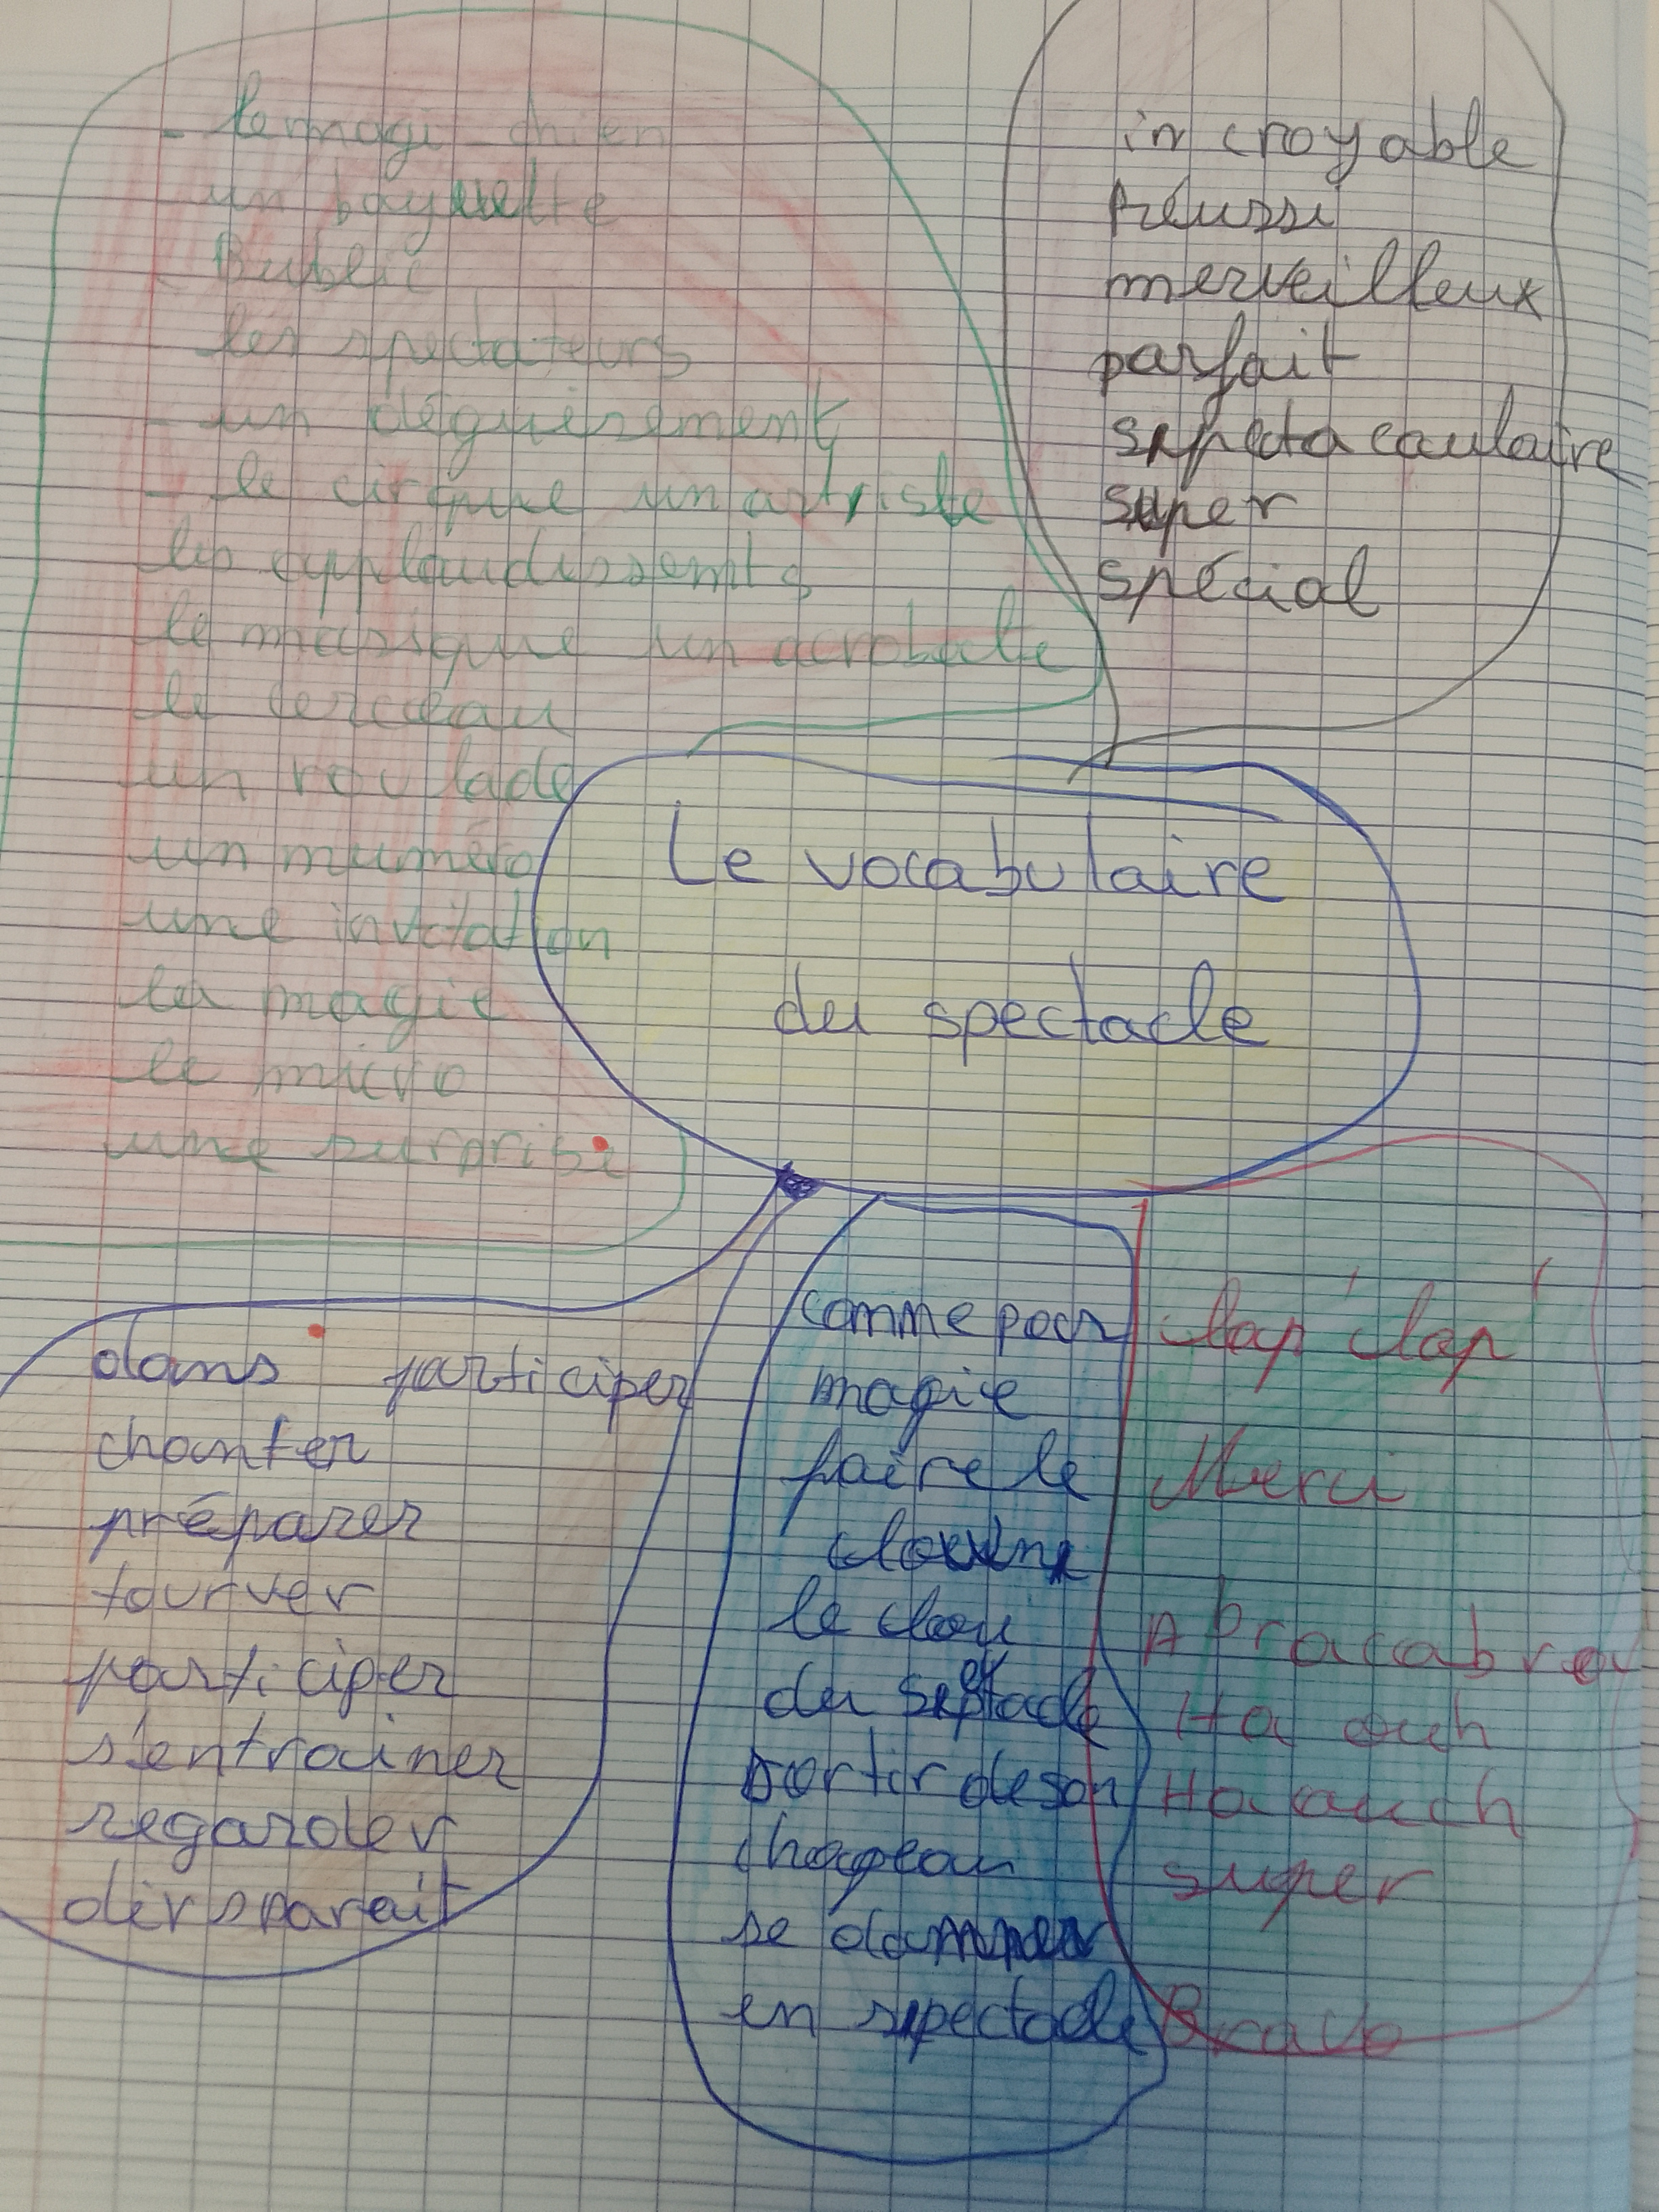 - le magi-chien
- un bayuette
- Public
- les spectateurs
- un déguisement
- le cirque un artriste
les applaudissemts
le masique un acrobate
le cerceau
un roulade
un muméro
une invitation
la magie
le micro
une surprise
incroyable
réussi
merveilleux
parfait
spectacaulaire
super
spécial
Le vocabulaire
du spectacle
dans participer
chanter
préparer
tourver
participer
s'entrainer
regarder
dirsparait
comme pour
magie
faire le
clown
le clou
du spetacle
sortir de son
chapeau
se donner
en spectacle
clap' clap'
Merci
Abracabra
Ha ouh
Ha auch
super
Bravo